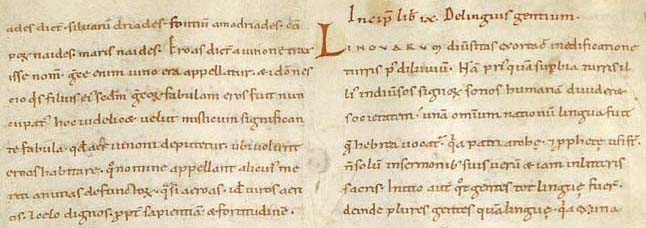 ades dict̄. siluarū driades. fontiū amadriades. cā
pox naides. maris naides. Eroas dict̄ a iunone trax
isse nom̄. grece enim iuno era appellatur. & idō nes
cio q̄s filius ei scd̄m grecox fabulam eros fuit nun
cupat᷒. hoc uidelicæ uelut misticum significan
te fabula. qd̄ aer iunoni deputetur. ubi uolunt
eroas habitare. quo nomine appellant alicui᷒ me
riti animas defunctox. q̄si aeroas. id ē uiros aeri
os. & celo dignos. ppt̄ sapientiā & fortitudinē.
Incip̄ lib̄ ix. De linguis gentium.
LINGVARVM diuersitas exorta ē in edificatione
turris p᷒ diluuiū. Nā pri᷒ quā supbia turris il
li᷒ in diuersos signox sonos humanā diuideret
societatem. una omnium nationū lingua fuit.
q̄ hebrea uocat᷒. q̄ patriarche & pphetę usi st̄.
n̄ solū in sermonib᷒ suis uerū & iam in litteris
sacris. Initio aut̄ qt̄ gentes tot linguę fuer̄.
deinde plures gentes quā linguę. q̄a ex una